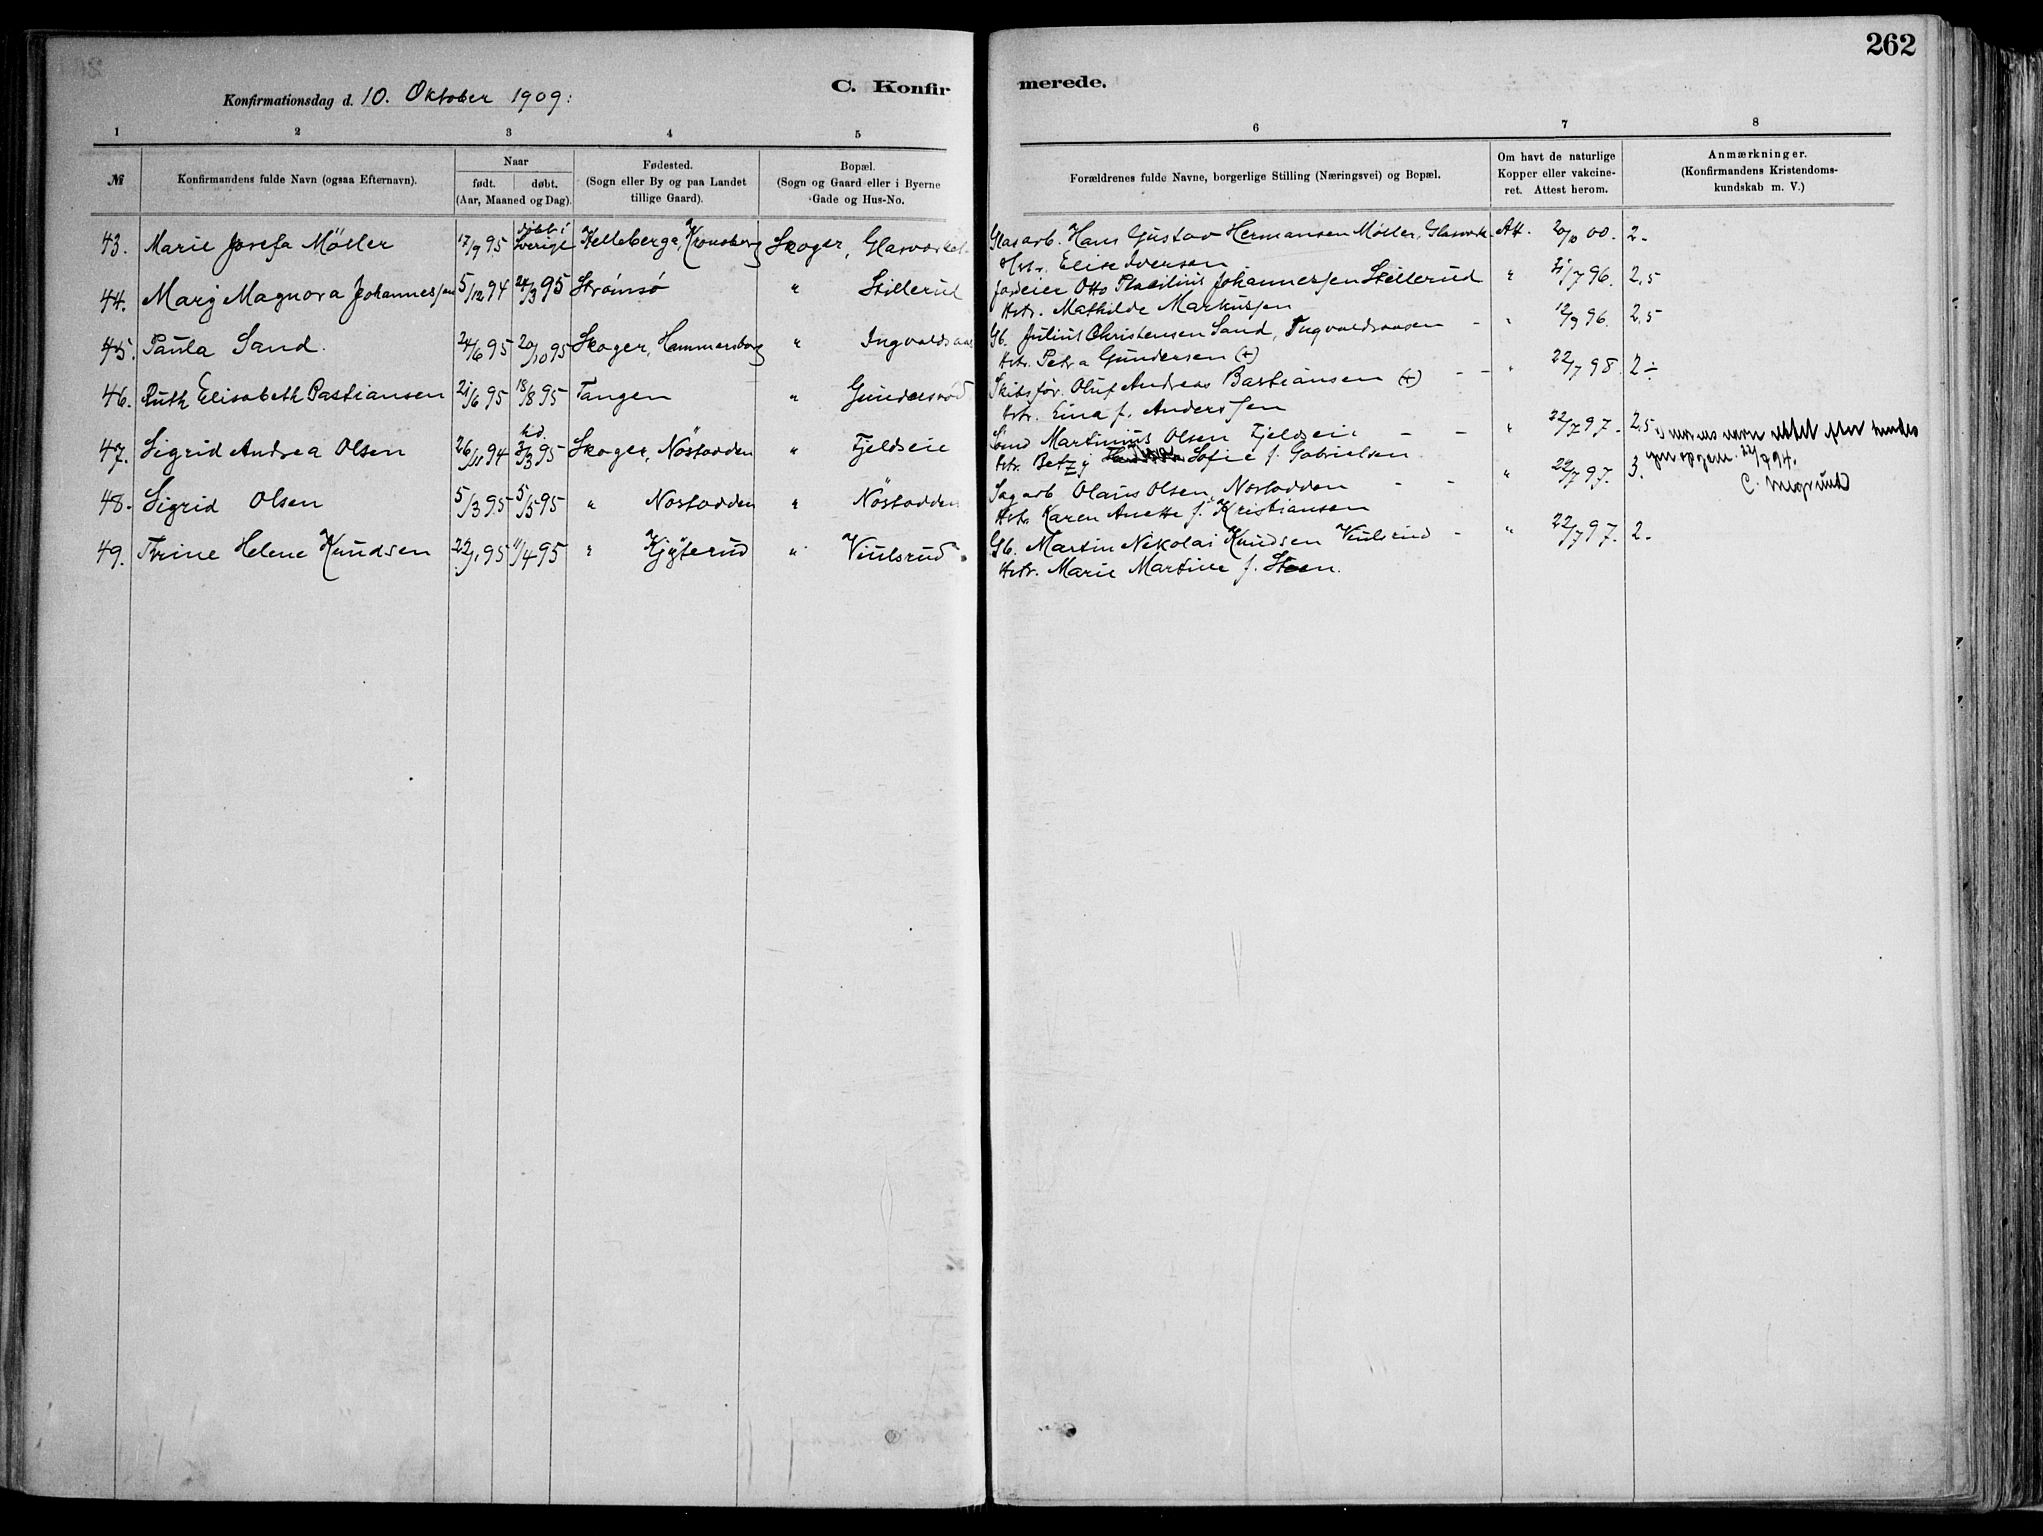 262
C. Konfir merede.
Konfirmationsdag d. 10. Oktober 1909:
1 2 3 4 5 6 7 8
№ Konfirmandens fulde Navn (ogsaa Efternavn).
Naar født. døbt. (Aar, Maaned og Dag).
Fødested. (Sogn eller By og paa Landet tillige Gaard).
Bopæl. (Sogn og Gaard eller i Byerne Gade og Hus-No.
Forældrenes fulde Navne, borgerlige Stilling (Næringsvei) og Bopæl.
Om havt de naturlige Kopper eller vakcineret. Attest herom.
Anmærkninger. (Konfirmandens Kristendomskundskab m. V.)
43. Marie Josefa Möller 17/9 95 döbt i Sverige Kelleberga, Kronoberg Skoger, Glasværket. Glasarb. Hans Gustav Hermansen Möller, Glasverk. Att. 20/10 00. 2-
Hstr. Elise Iversen
44. Marij Magnora Johannessen 5/12 94 24/3 95 Strømsø " Stillerud Gaardeier Otto Johannessen Stillerud " 21/7 96. 2,5
Hstr. Mathilde Markussen
45. Paula Sand. 24/6 95 20/10 95 Skoger, Hammersborg " Ingvaldsaas Gb. Julius Christensen Sand, Ingvaldsaasen - " 12/9 96. 2,5
Hstr. Petra Gundersen (+)
46. Ruth Elisabeth Bastiansen 21/6 95 18/8 95 Tangen " Gundersröd Skibsfør. Oluf Andreas Bastiansen (+) - - " 22/7 98. 2÷
Hstr. Lina f. Anderssen
47. Sigrid Andrea Olsen 26/11 94 hd. 3/3 95 Skoger, Nöstodden " Fjeldseie Martinius Olsen Fjeldseie - - " 22/7 97. 2,5 Morens navn rettet efter hendes
Hstr. Betzy Sofie f. Gabrielsen
egen opgave.
48. Sigrid Olsen 5/3 95 5/5 95 " Nöstodden " Nöstodden Sagarb. Olaus Olsen, Nöstodden - - " 22/7 97. 3.
Hstr. Karen Anette f. Kristiansen
49. Trine Helene Knudsen 22/1 95 11/4 95 " Kjøterud " Viulsrud. Gb. Martin Nikolai Knudsen Viulsrud - " 22/7 97. 2-
Hstr. Marie Martine f. Steen.